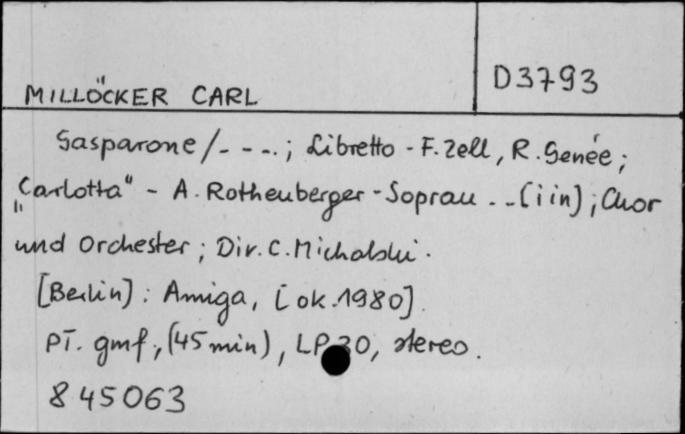 MILLÖCKER CARL
D3793
Gasparone/- - -.; Libretto - F. Zell, R. Genée;
„Carlotta" - A. Rothenberger - Sopran . . - [i in]; Chor
und Orchester; Dir. C. Michalski.
[Berlin]: Amiga, [ok. 1980].
Pł. gmf., (45 min), LP 30, stereo.
8 45063